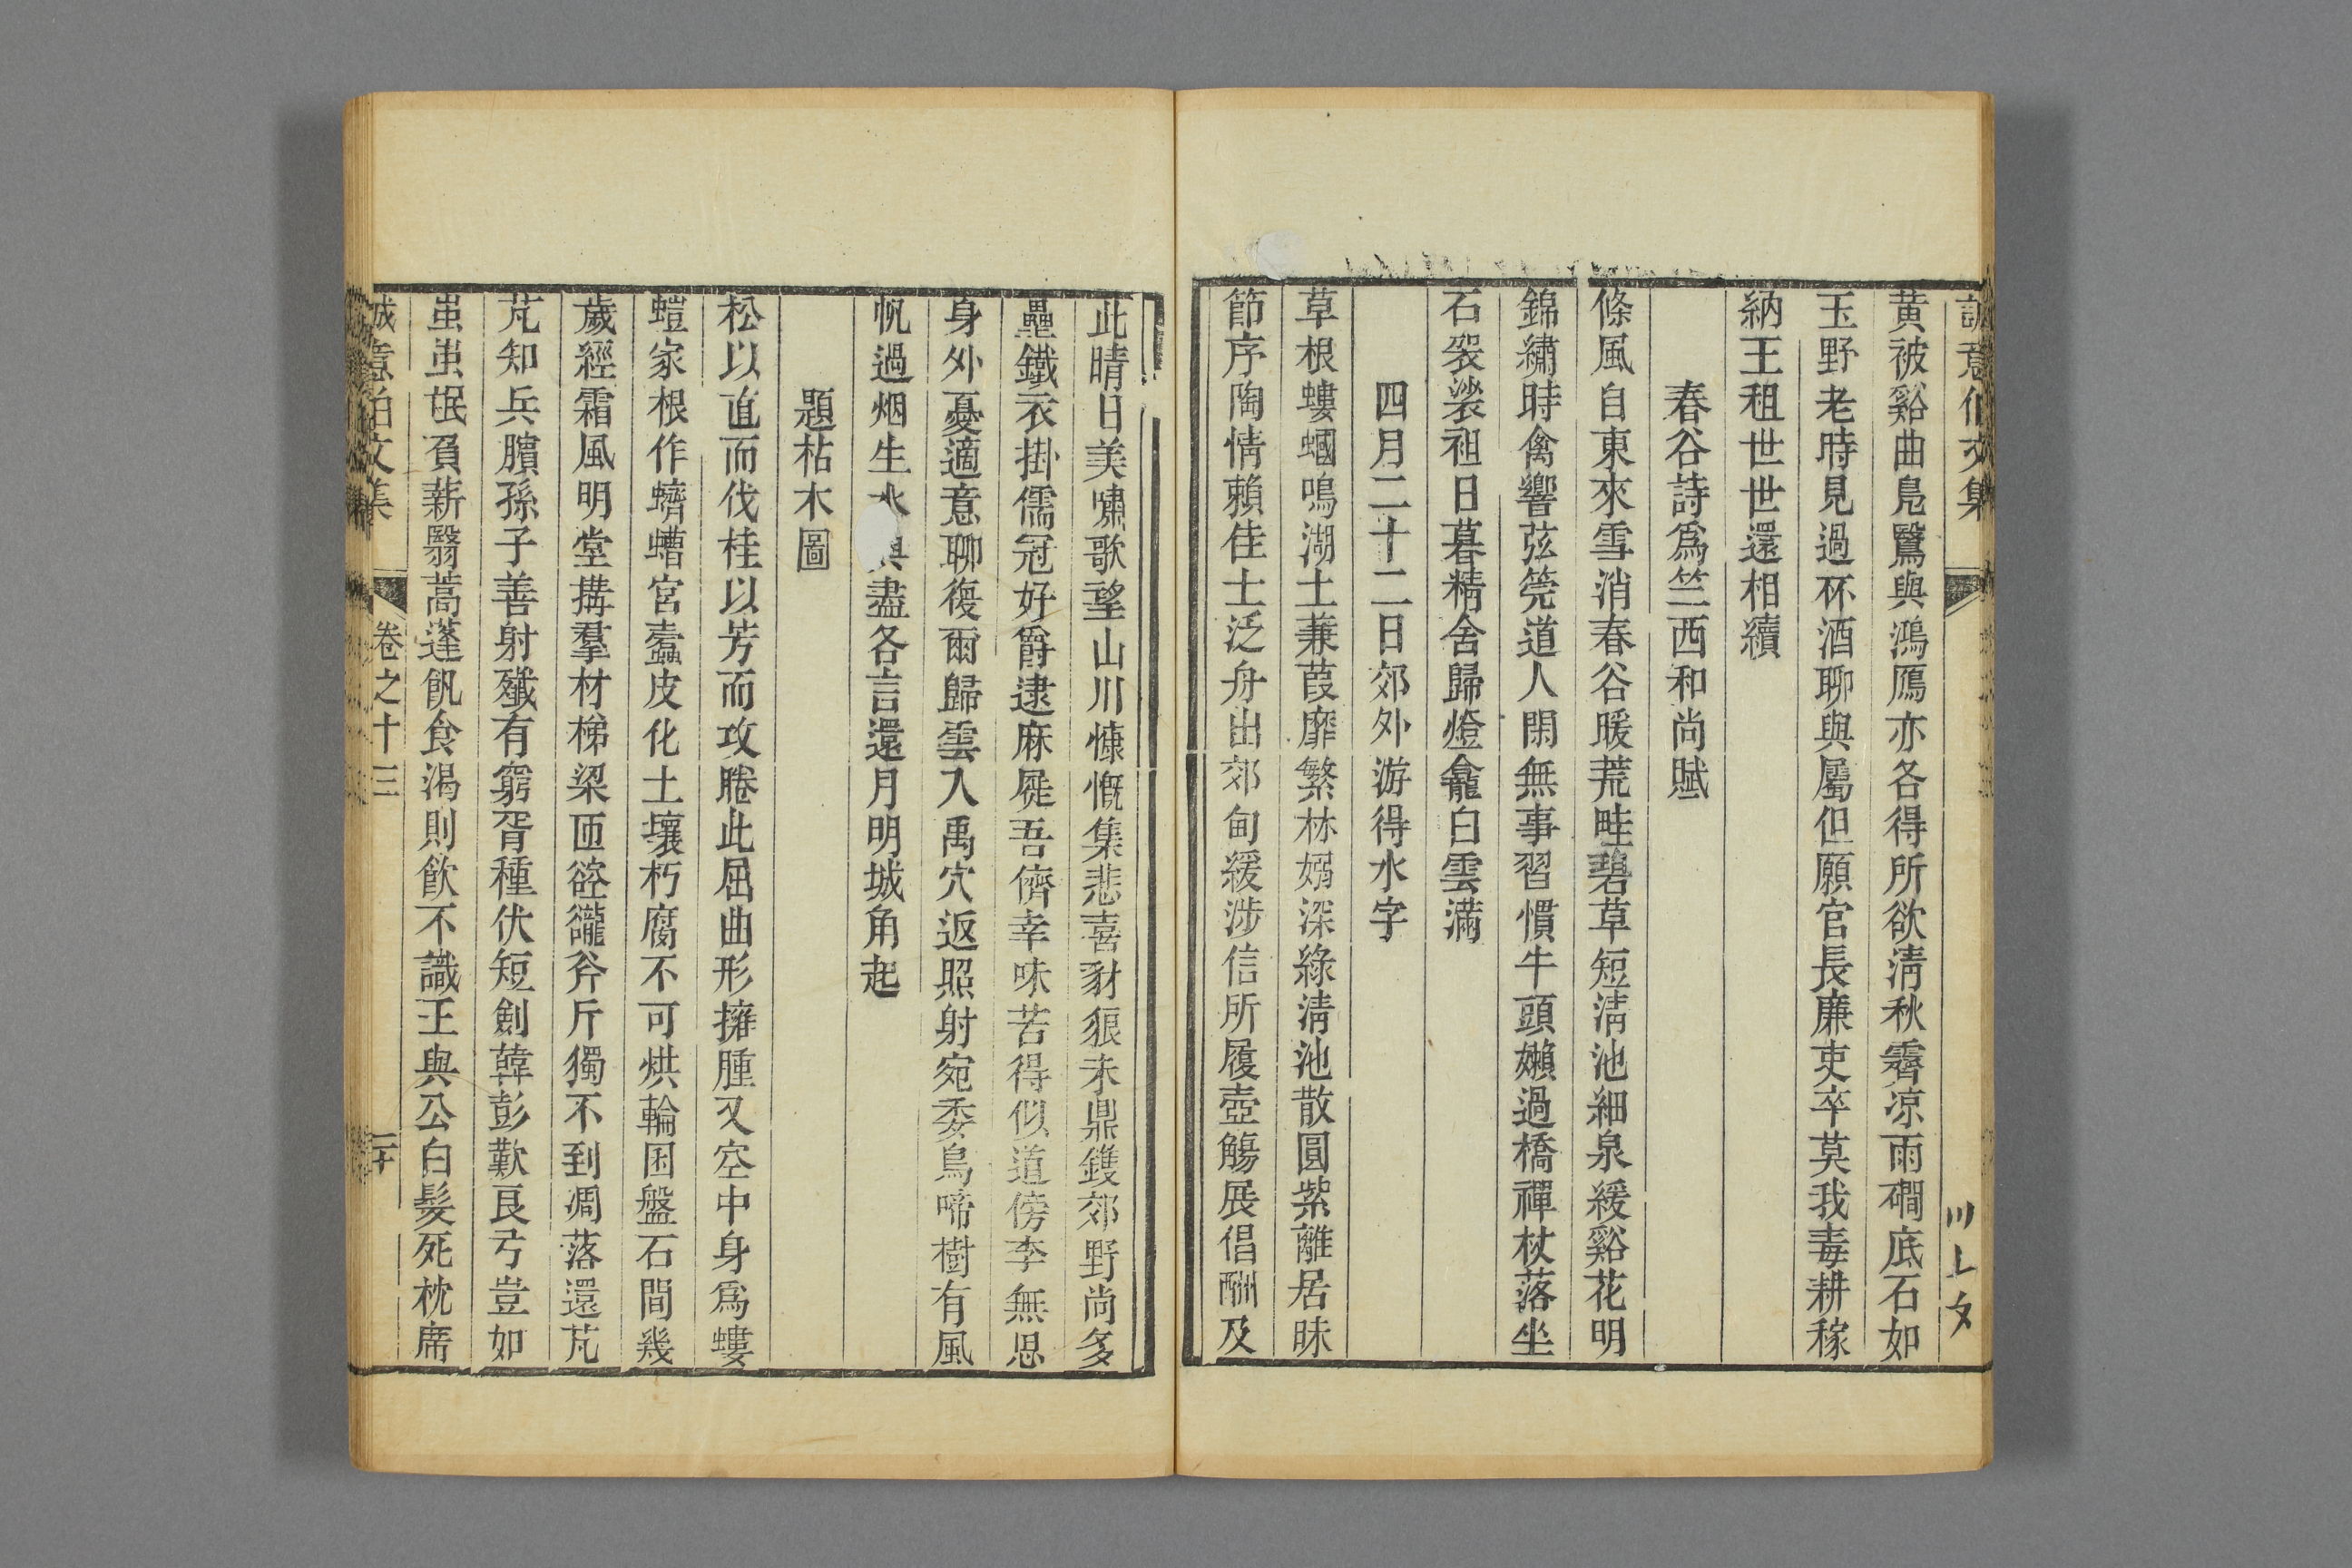 誠意伯文集
黄被谿曲鳧鷖與鴻鴈亦各得所欲淸秋霽凉雨磵底石如
玉野老時見過杯酒聊與屬但願官長廉吏卒莫我毒耕稼
納王租世世還相續
春谷詩爲竺西和尚賦
條風自東來雪消春谷暖荒畦碧草短淸池細泉緩谿花明
錦繡時禽響弦筦道人閑無事習慣牛頭嬾過橋禪杖落坐
石袈裟袒日暮精舍歸燈龕白雲滿
四月二十二日郊外游得水字
草根螻蟈鳴湖上蒹葭靡繁林嫋深綠淸池散圓紫離居昧
節序陶情賴佳士泛舟出郊甸緩涉信所履壺觴展倡酬及
此晴日美嘯歌望山川慷慨集悲喜豺狼未鼎鑊郊野尚多
壘鐵衣掛儒冠好爵逮麻屣吾儕幸味苦得似道傍李無思
身外憂適意聊復爾歸雲入禹穴返照射宛委鳥啼樹有風
帆過烟生水興盡各言還月明城角起
題枯木圖
松以直而伐桂以芳而攻睠此屈曲形擁腫又空中身爲螻
螘家根作蠐螬宮蠹皮化土壤朽腐不可烘輪囷盤石間幾
歲經霜風明堂搆羣材梯梁匝嵱巃斧斤獨不到凋落還芃
芃知兵臏孫子善射殲有窮胥種伏短劍韓彭歎良弓豈如
蚩蚩氓負薪翳蒿蓬飢食渴則飮不識王與公白髮死枕席
誠意伯文集 卷之十三 二十